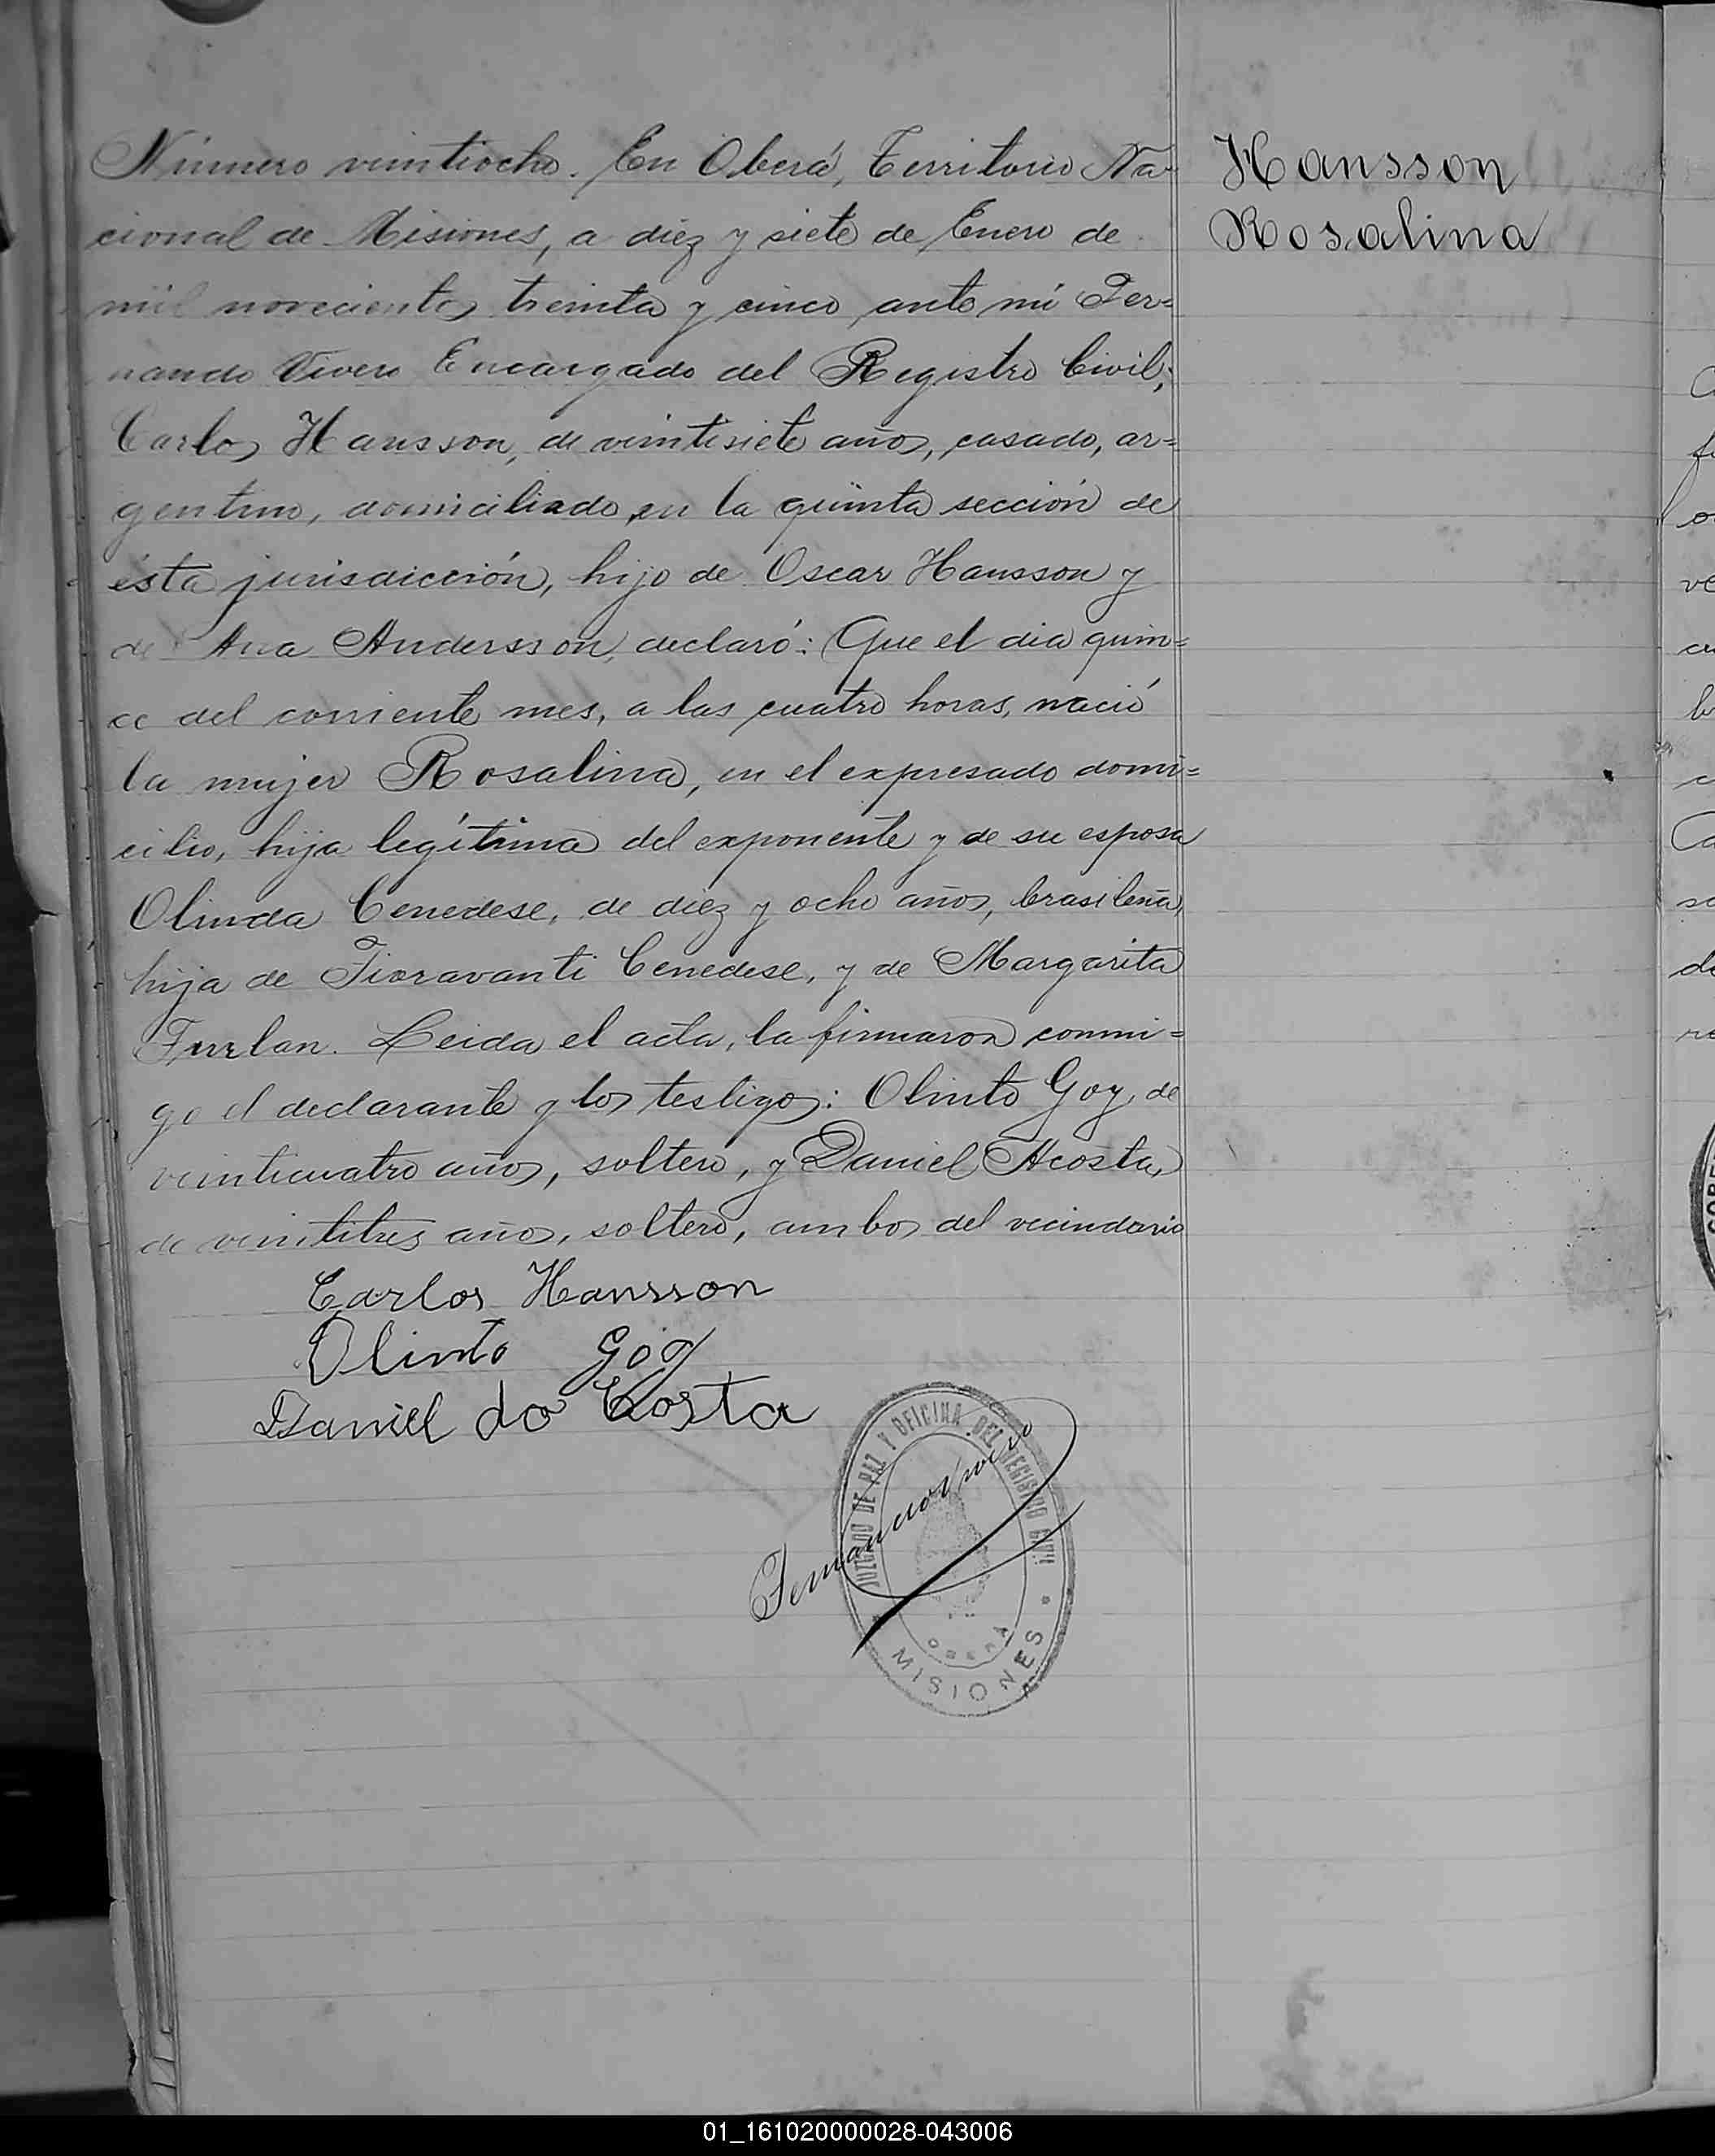 Número veintiocho. En Oberá, Territorio Na-
cional de Misiones, a diez y siete de Enero de
mil novecientos treinta y cinco, ante mí Fer=
nando Vivero Encargado del Registro Civil;
Carlos Hansson, de veintisiete años, casado, ar=
gentino, domiciliado en la quinta sección de
ésta jurisdicción, hijo de Oscar Hansson y
de Ana Andersson, declaró: Que el dia quin=
ce del corriente mes, a las cuatro horas, nació
la mujer Rosalina, en el expresado domi=
cilio, hija legítima del exponente y de su esposa
Olinda Cenedese, de diez y ocho años, brasileña,
hija de Fioravanti Cenedese, y de Margarita
Furlan. Leida el acta, la firmaron conmi=
go el declarante y los testigos: Olinto Goy, de
veinticuatro años, soltero, y Daniel Acosta,
de veintitres años, soltero, ambos del vecindario
Carlos Hansson
Olinto Goy
Daniel do Costa
Fernando Vivero
JUZGADO DE PAZ Y OFICINA DEL REGISTRO CIVIL
OBERA
MISIONES
Hansson
Rosalina
01_161020000028-043006